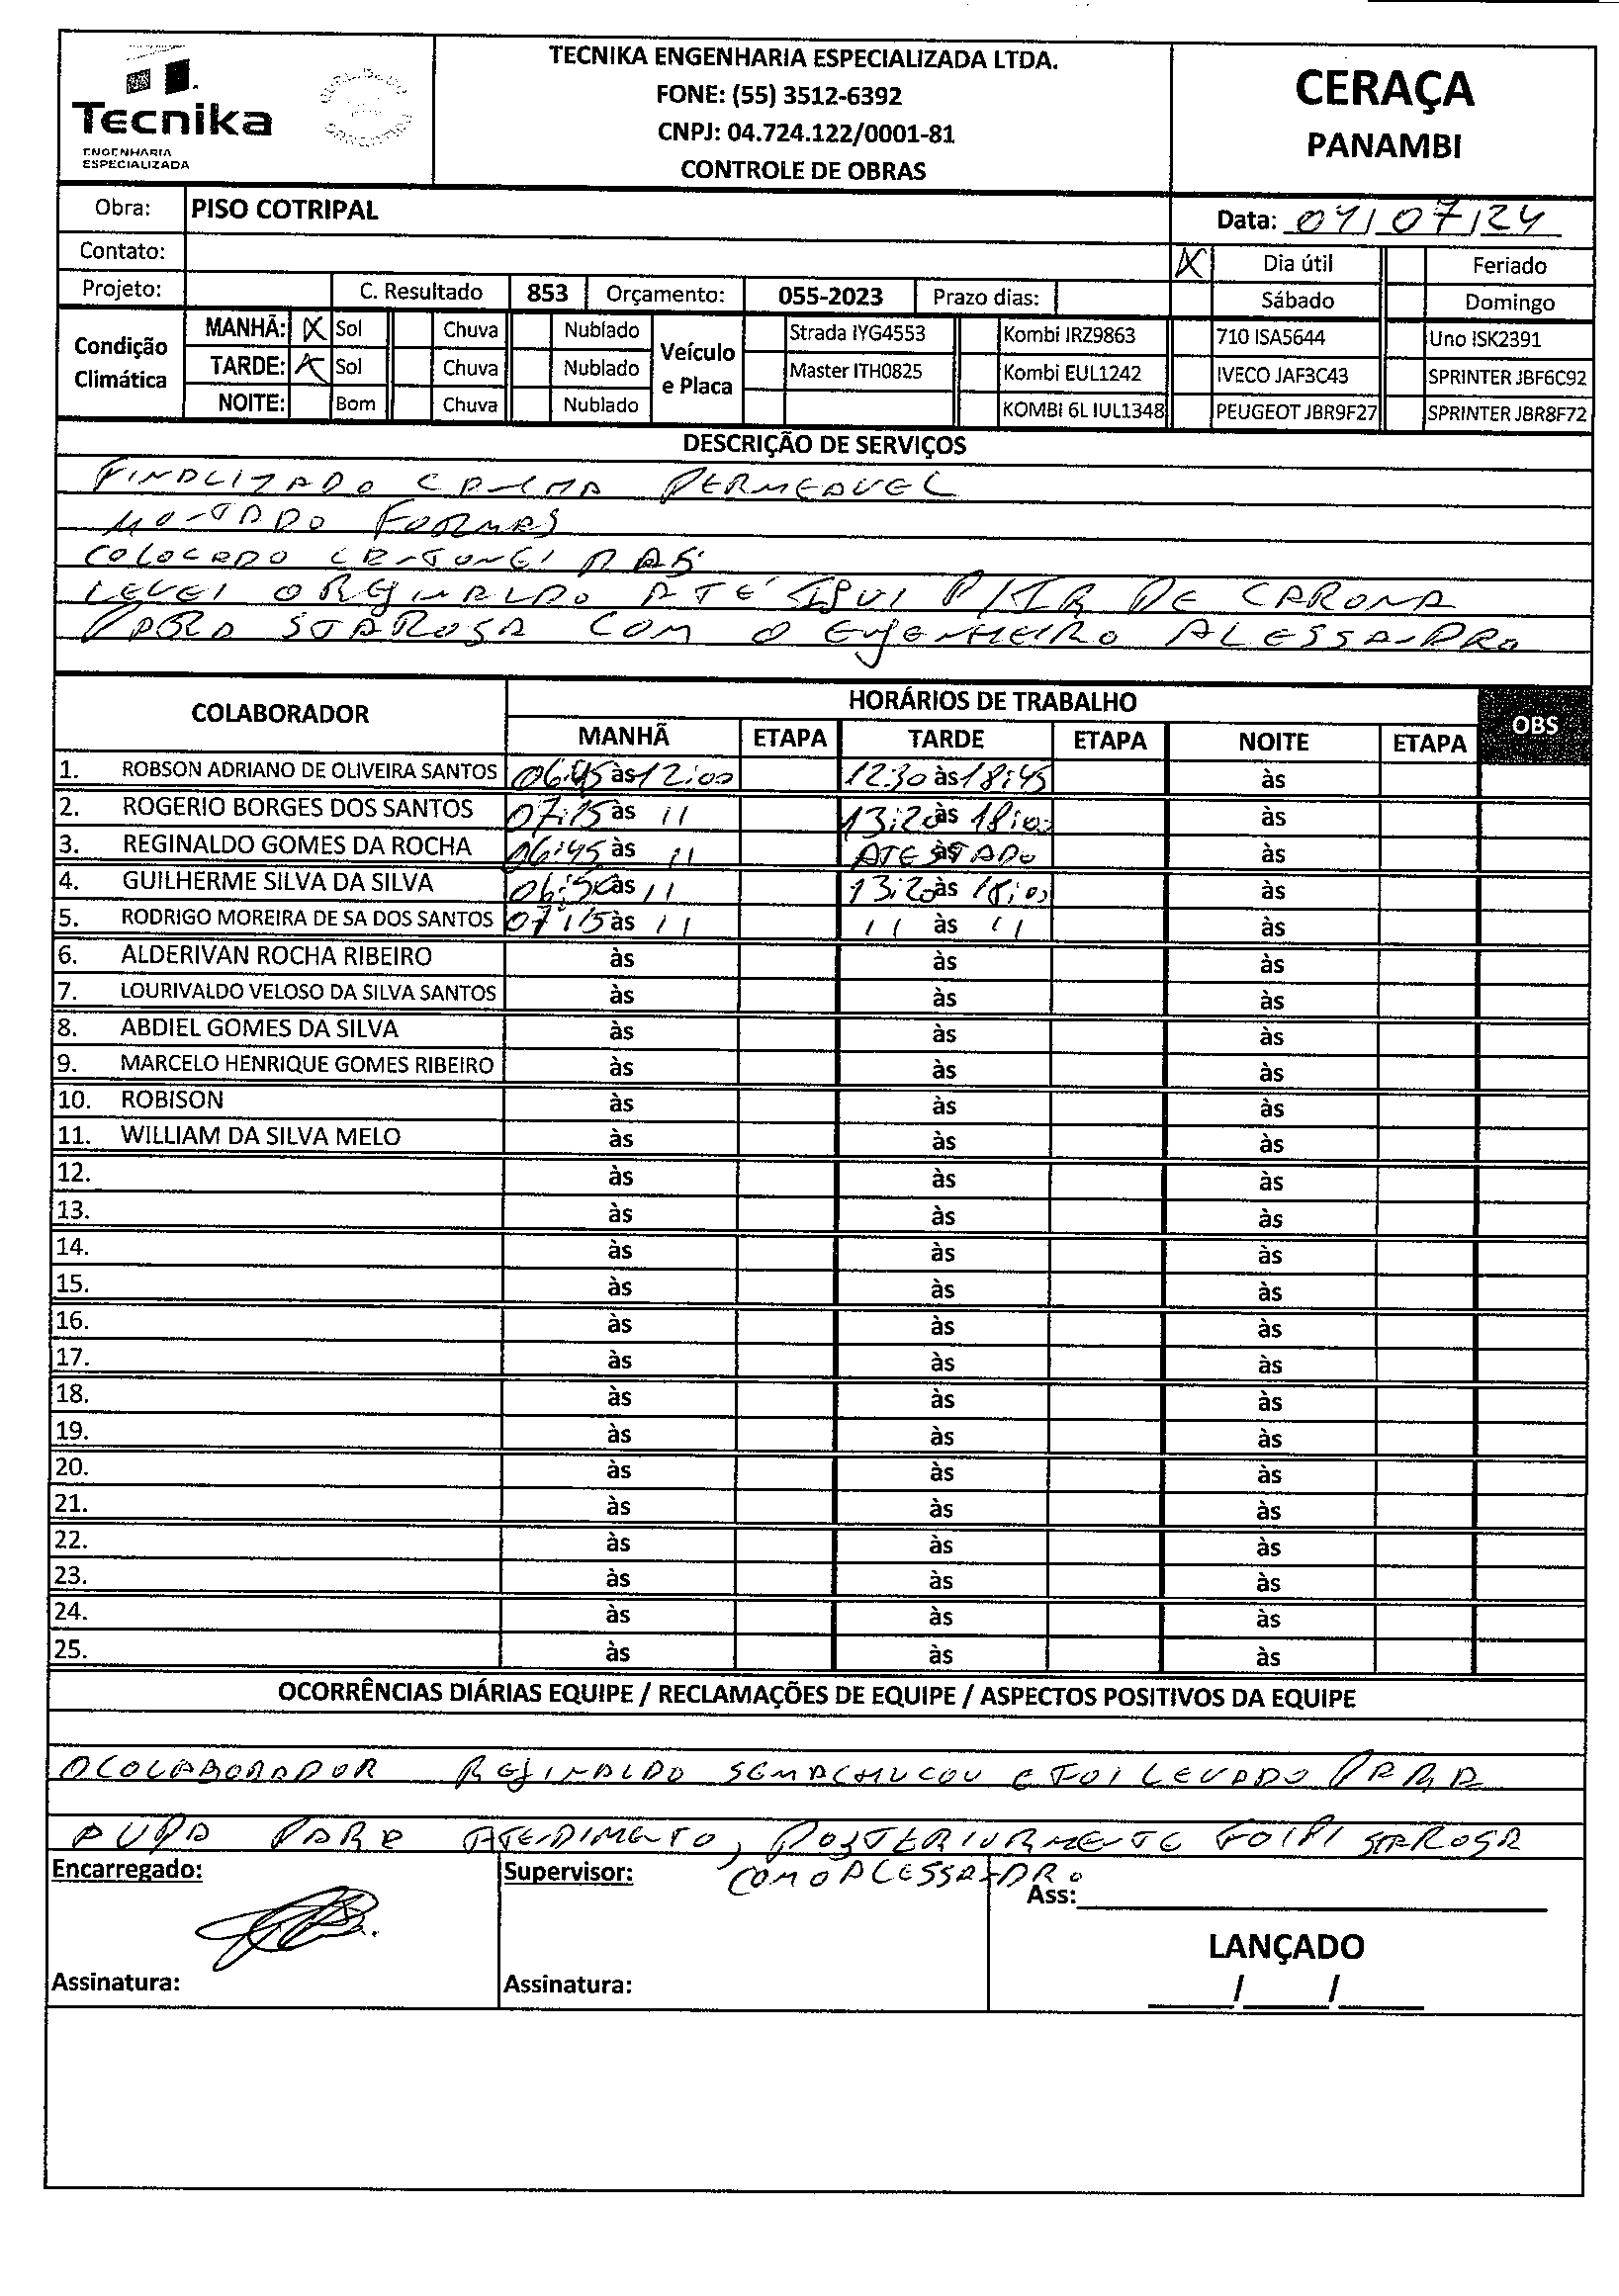 Tecnika
ENGENHARIA
ESPECIALIZADA
TECNIKA ENGENHARIA ESPECIALIZADA LTDA.
FONE: (55) 3512-6392
CNPJ: 04.724.122/0001-81
CONTROLE DE OBRAS
CERAÇA
PANAMBI
Obra: PISO COTRIPAL
Data: 04/07/24
Contato:
X Dia útil Feriado
Projeto: C. Resultado 853 Orçamento: 055-2023 Prazo dias:
Sábado Domingo
Condição Climática
MANHÃ: X Sol Chuva Nublado
TARDE: X Sol Chuva Nublado
NOITE: Bom Chuva Nublado
Veículo e Placa
Strada IYG4553 Kombi IRZ9863 710 ISA5644 Uno ISK2391
Master ITH0825 Kombi EUL1242 IVECO JAF3C43 SPRINTER JBF6C92
KOMBI 6L IUL1348 PEUGEOT JBR9F27 SPRINTER JBR8F72
DESCRIÇÃO DE SERVIÇOS
FINALIZADO CANCHA PERMEAVEL
MONTADO FORMAS
COLOCADO CANTONEIRAS
LEVEI O REGINALDO ATÉ IJUI P/IR DE CARONA
PARA STAROSA COM O ENGENHEIRO ALESSANDRO
COLABORADOR HORÁRIOS DE TRABALHO OBS
MANHÃ ETAPA TARDE ETAPA NOITE ETAPA
1. ROBSON ADRIANO DE OLIVEIRA SANTOS 06:45 às 12:00 12:30 às 18:45 às
2. ROGERIO BORGES DOS SANTOS 07:15 às 11 13:20 às 18:00 às
3. REGINALDO GOMES DA ROCHA 06:45 às 11 ATESTADO às às
4. GUILHERME SILVA DA SILVA 06:50 às 11 13:20 às 18:00 às
5. RODRIGO MOREIRA DE SA DOS SANTOS 07:15 às 11 11 às 11 às
6. ALDERIVAN ROCHA RIBEIRO às às às
7. LOURIVALDO VELOSO DA SILVA SANTOS às às às
8. ABDIEL GOMES DA SILVA às às às
9. MARCELO HENRIQUE GOMES RIBEIRO às às às
10. ROBISON às às às
11. WILLIAM DA SILVA MELO às às às
12. às às às
13. às às às
14. às às às
15. às às às
16. às às às
17. às às às
18. às às às
19. às às às
20. às às às
21. às às às
22. às às às
23. às às às
24. às às às
25. às às às
OCORRÊNCIAS DIÁRIAS EQUIPE / RECLAMAÇÕES DE EQUIPE / ASPECTOS POSITIVOS DA EQUIPE
O COLABORADOR REGINALDO SEMACHUCOU E FOI LEVADO PARA
A UPA PARA ATENDIMENTO, POSTERIORMENTE FOI P/ STAROSA
COM O ALESSANDRO
Encarregado: Supervisor: Ass:
LANÇADO
Assinatura: Assinatura: / /